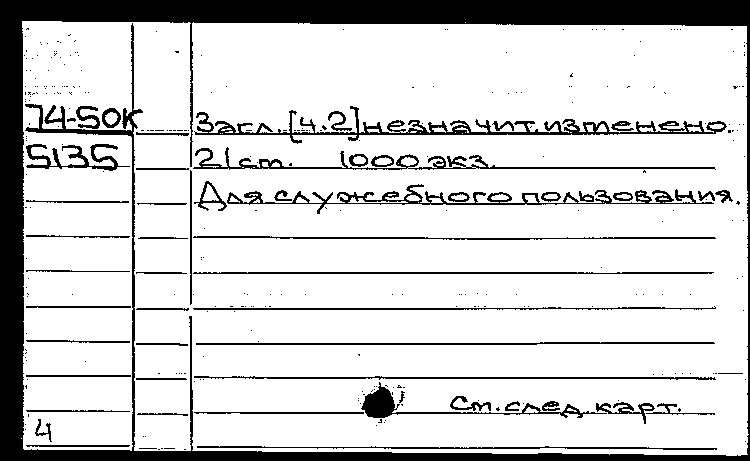 74-50К Загл. [ч.2] незначит. изменено.
5135 21 см. 1000 экз.
Для служебного пользования.
См. след. карт.
4